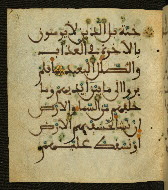 جنة بل الذين لا يؤمنون
بالاخرة في العذاب
والضلال البعيد افلم
يروا الى ما بين ايديهم وما
خلفهم من السماء والارض
ان نشا نخسف بهم الارض
او نسقط عليهم